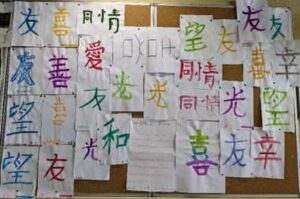 友 喜 同情 望 友 友 幸
友 善 愛 同情 喜
望 喜 友 光 光 同情 光 望
望 友 光 和 喜 友 幸